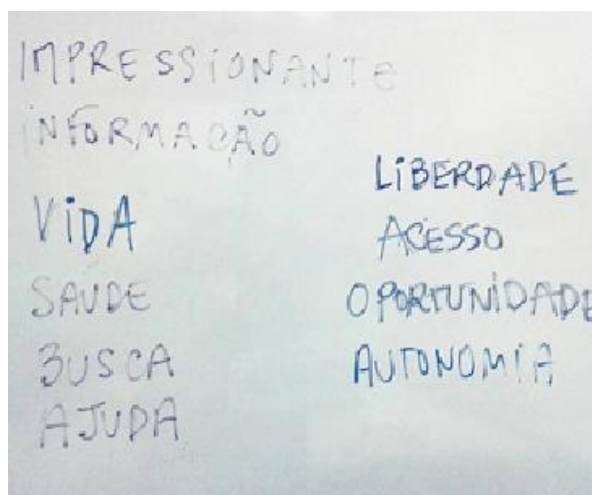 IMPRESSIONANTE
INFORMAÇÃO
VIDA
SAUDE
BUSCA
AJUDA
LIBERDADE
ACESSO
OPORTUNIDADE
AUTONOMIA